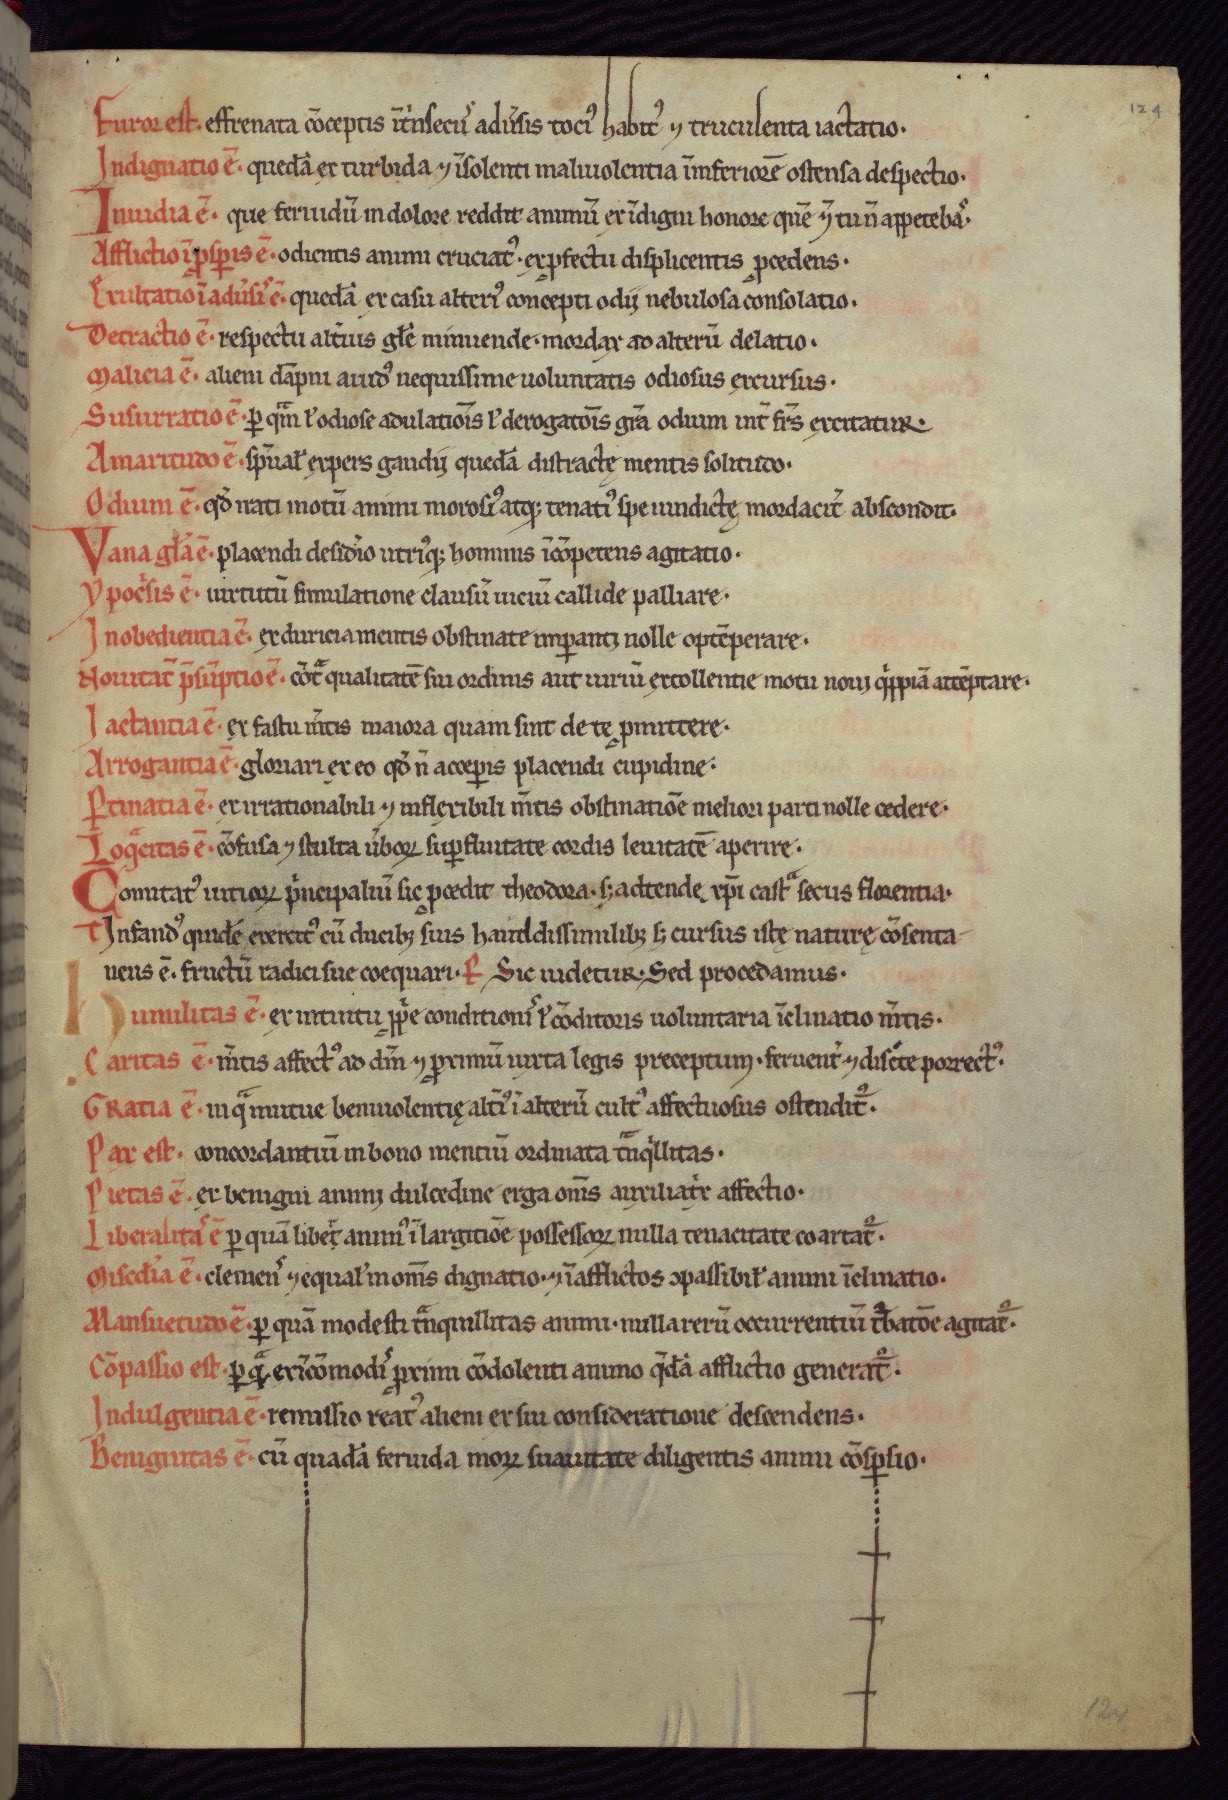 124
Furor est. effrenata c̄oceptis īt̄nsecus adu̅sis toci᷒ habit᷒ ⁊ truculenta iactatio.
Indignatio ē. quedā ex turbida ⁊ īsolenti maliuolentia īinferiorē ostensa despectio.
Inuidia ē. que feruidū in dolore reddit animū ex īdigni honore quē ⁊ tu n̄ appetebas.
Afflictio ī ꝓspis ē. odientis animi cruciat᷒. ex ꝓfectu displicentis ꝓcedens.
Exultatio ī adu̅sis ē. quedā ex casu alteri᷒ concepti odij nebulosa consolatio.
Detractio ē. respectu alt̄ius gl̄e minuende. mordax ad alterū delatio.
Malicia ē. alieni dāpni auid᷒ nequissime uoluntatis odiosus excursus.
Susurratio ē. ꝑ quam ł odiose adulatiōis ł derogatōis gr̄a odium int̄ fr̄s excitatur.
Amaritudo ē. spūal' expers gaudij quedā distractę mentis solitudo.
Odium ē. qd̄ irati motū animi morosi᷒ atq; tenati᷒ spe uindictę mordacit̄ abscondit.
Vana gl̄a ē. placendi desid̄io utriq; hominis īcōpetens agitatio.
Ypoc̄sis ē. uirtutū simulatione clausū uiciū callide palliare.
Inobedientia ē. ex duricia mentis obstinate imꝑantj nolle optēperare.
Nouitat̄ p̄sūptio ē. cōt̄ qualitatē sui ordinis aut uiriū excollentie motu nouj qippiā attēptare.
Iactantia ē. ex fastu m̄tis maiora quam sint de te ꝓmittere.
Arrogantia ē. gloriari ex eo qd̄ n̄ acceꝑis placendi cupidine.
Ꝑtinatia ē. ex irrationabili ⁊ inflexibili m̄tis obstinatiōe meliori parti nolle cedere.
Loqcitas ē. cōfusa ⁊ stulta ūboꝝ suꝑfluitate cordis leuitatē aperire.
Comitat᷒ uitioꝝ p̄ncipaliū sic ꝓcedit theodora. s; adtende xp̄i castra secus florentia.
T Infand᷒ quidē exercit᷒ cū ducib; suis haud dissimilib; s; cursus istę naturę cōsenta
neus ē. fructū radici sue coequari. P Sic uidetur. Sed procedamus.
Humilitas ē. ex intuitu ꝓprie conditionis ł cōditoris uoluntaria īclinatio m̄tis.
Caritas ē. m̄tis affect᷒ ad dm̄ ⁊ ꝓximū iuxta legis preceptum. feruent̄ ⁊ discrete porrect᷒.
Gratia ē. in qa mutue beniuolentię alt̄i᷒ ī alterū cult᷒ affectuosus ostendit̄.
Pax est. concordantiū in bono mentiū ordinata tnqllitas.
Pietas ē. ex benigni animj dulcedine erga om̄s auxiliatrix affectio.
Liberalitas ē ꝑ quā liber anim᷒ ī largitiōe possessoꝝ nulla tenacitate coartat̄.
Misc̄dia ē. clemens ⁊ equal' in om̄s dignatio. ⁊ ī afflictos ꝯpassibil' animi īclinatio.
Mansuetudo ē. ꝑ quā modesti tnquillitas animi. nulla rerū occurrentiū tbatōe agitat̄.
Cōpassio est. ꝑ qa ex īcōmodis ꝓximi cōdolenti animo qdā afflictio generat̄.
Indulgentia ē. remissio reat᷒ alieni ex sui consideratione descendens.
Benignitas ē. cū quadā feruida moꝝ suauitate diligentis animi cōsꝑsio.
124